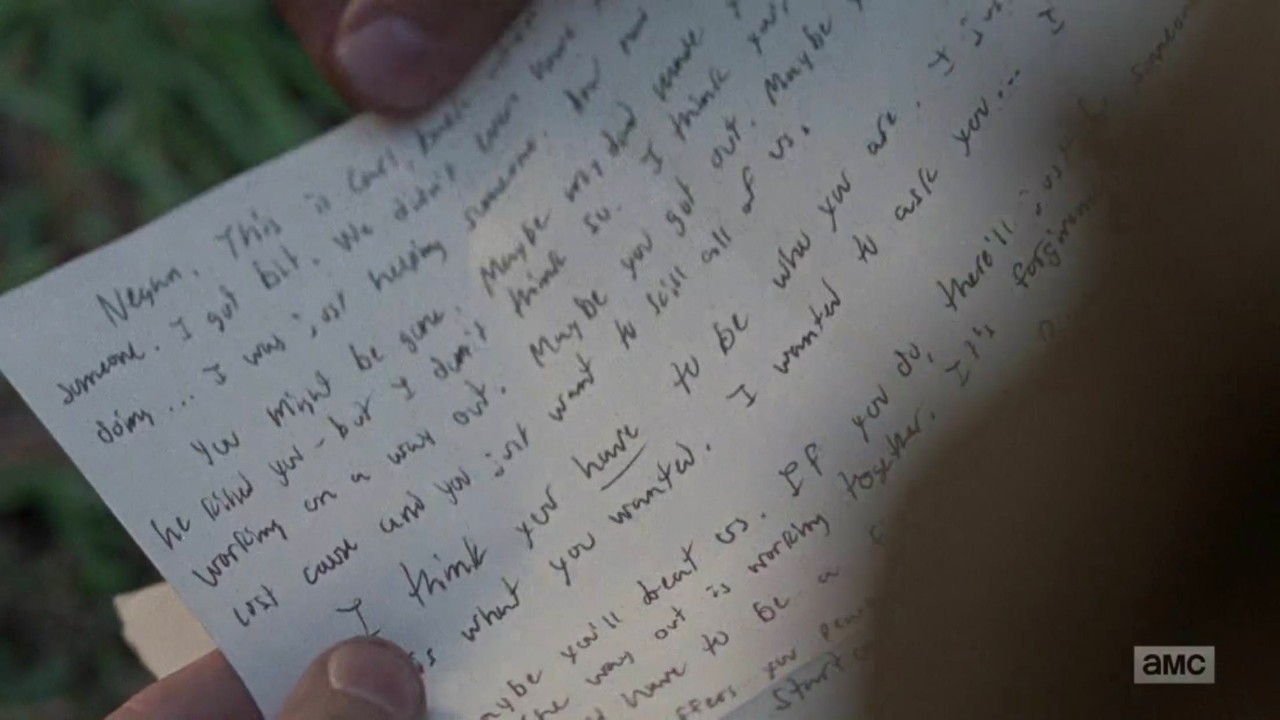 Negan. This is Carl,
someone. I got bit. We didn't even
doing... I was just helping someone.
You might be gone. Maybe my dad made
he killed you - but I don't think so. I think you're
working on a way out. Maybe you got out. Maybe
lost cause and you just want to kill all of us.
I think you have to be who you are. I
what you wanted. I wanted to ask you... I
you'll beat us. If you do, there'll
way out is working together. It's
have to be a
your
start
AMC